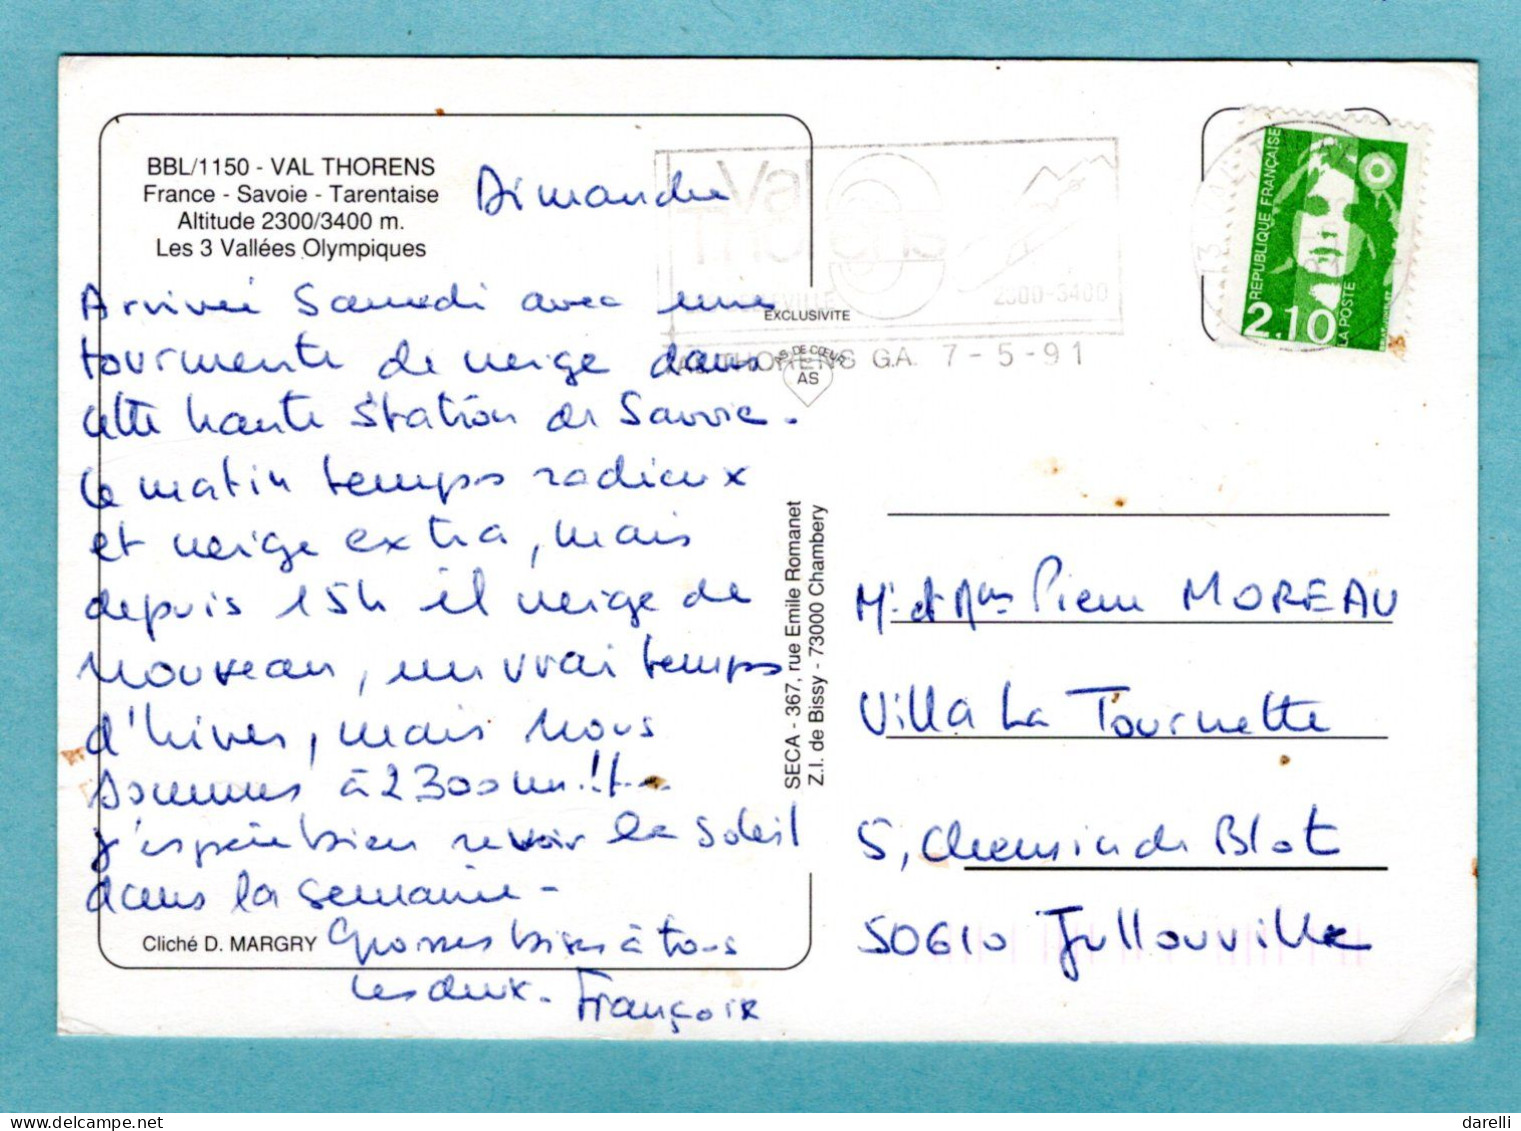 BBL/1150 - VAL THORENS
France - Savoie - Tarentaise
Altitude 2300/3400 m.
Les 3 Vallées Olympiques
Dimanche
Arrivée Samedi avec une
tourmente de neige dans
cette haute station de Savoie.
Ce matin temps radieux
et neige extra, mais
depuis 15h il neige de
nouveau, un vrai temps
d'hiver, mais nous
sommes à 2300 m.!!...
j'espère bien revoir le soleil
dans la semaine -
Grosses bises à tous
les deux.
Françoise
Cliché D. MARGRY
EXCLUSIVITE
AS DE CŒUR
AS
SECA - 367, rue Emile Romanet
Z.I. de Bissy - 73000 Chambery
Val
Thorens
BELLEVILLE
2300-3400
VAL THORENS G.A. 7-5-91
73
REPUBLIQUE FRANÇAISE
2.10
LA POSTE
Mr et Mme Pierre MOREAU
Villa La Tournette
5, Chemin de Blot
50610 Jullouville
darelli